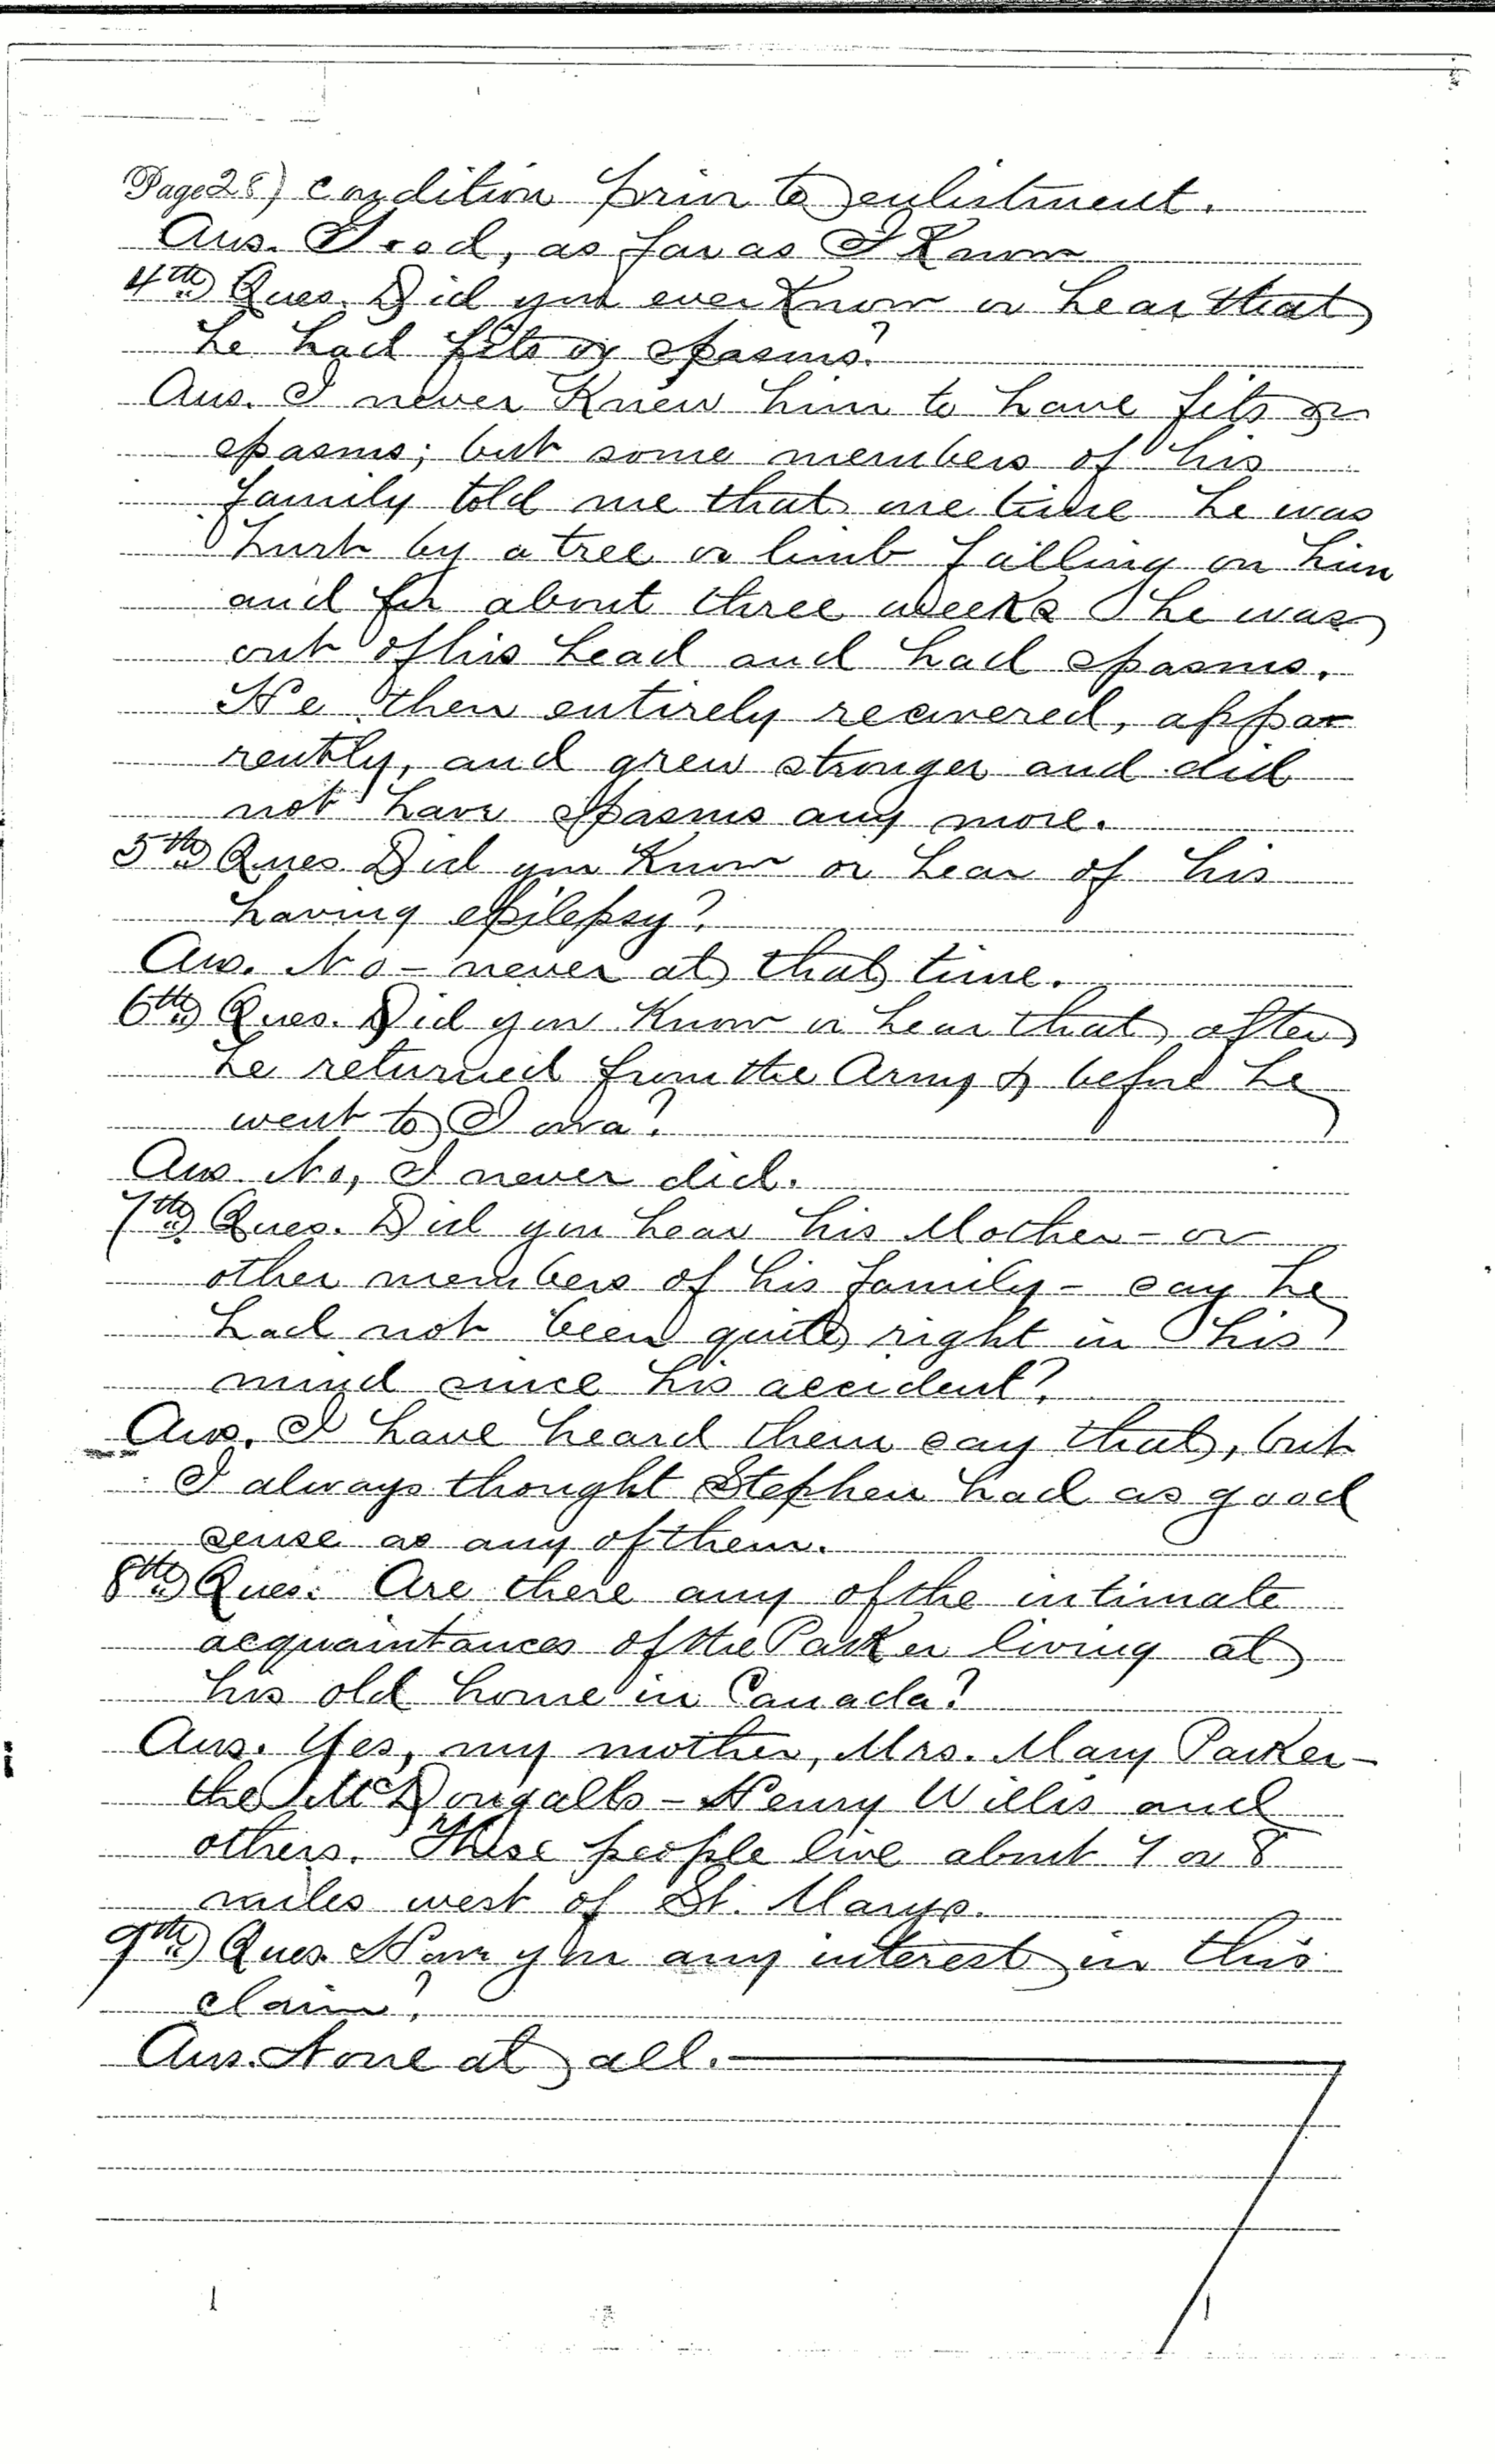 Page 28) condition prior to enlistment.
Ans. Good, as far as I Know
4th Ques. Did you ever Know or hear that
he had fits or spasms?
Ans. I never Knew him to have fits or
spasms; but some members of his
family told me that one time he was
hurt by a tree or limb falling on him
and for about three weeks he was
out of his head and had spasms.
He then entirely recovered, appa-
rently, and grew stronger and did
not have spasms any more.
5th Ques. Did you Know or hear of his
having epilepsy?
Ans. No - never at that time.
6th Ques. Did you Know or hear that after
he returned from the Army & before he
went to Iowa?
Ans. No, I never did.
7th Ques. Did you hear his Mother - or
other members of his family - say he
had not been quite right in his
mind since his accident?
Ans. I have heard them say that, but
I always thought Stephen had as good
sense as any of them.
8th Ques. Are there any of the intimate
acquaintances of the Parker living at
his old home in Canada?
Ans. Yes, my mother, Mrs. Mary Parker -
the McDougalls - Henry Willis and
others. These people live about 7 or 8
miles west of St. Marys.
9th Ques. Have you any interest in this
claim?
Ans. None at all.